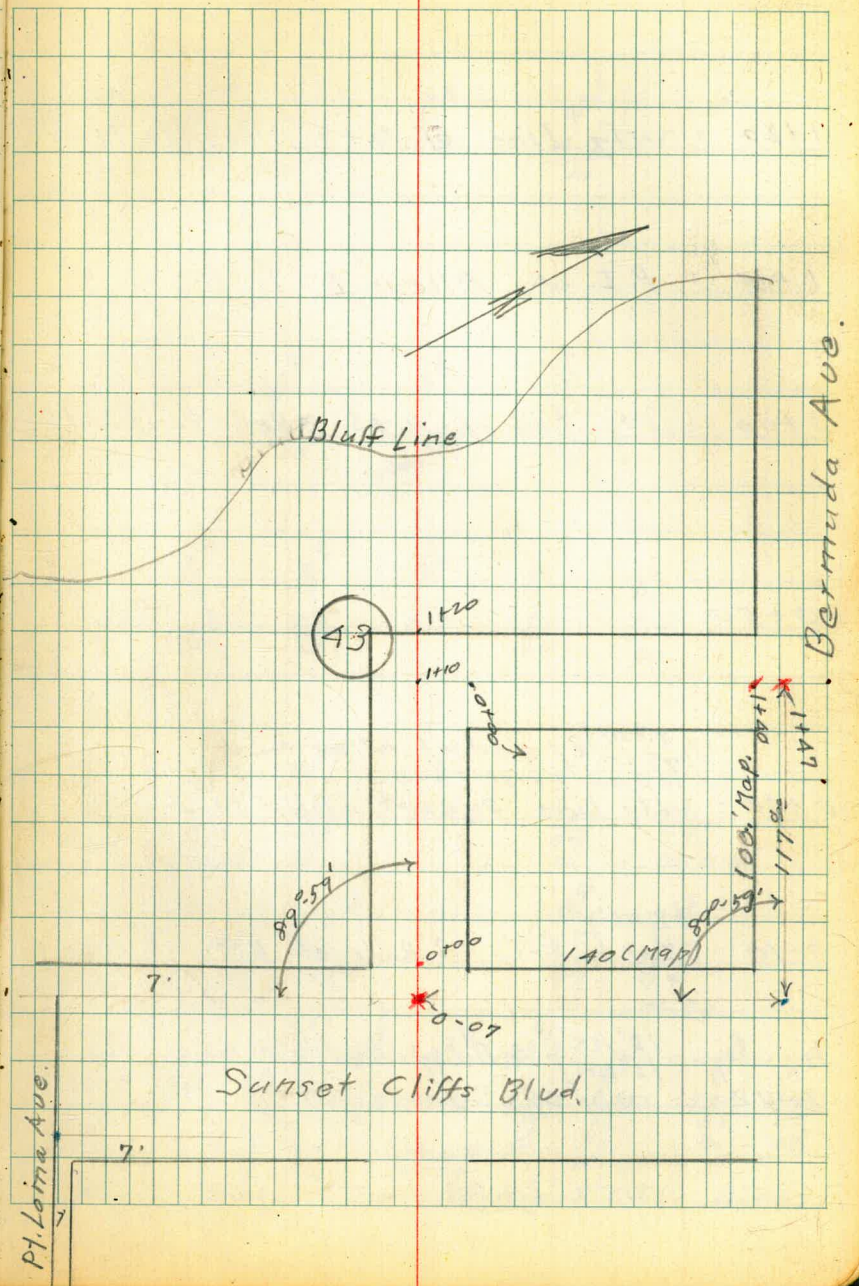 Bluff Line
Bermuda Ave.
43
1+20
1+10
0+00
1+40
1+47
100' Map.
117.00
89°-59'
89°-59'
0+00
140 (Map)
7'
0-07
Sunset Cliffs Blvd.
7'
Pt. Loma Ave.
7